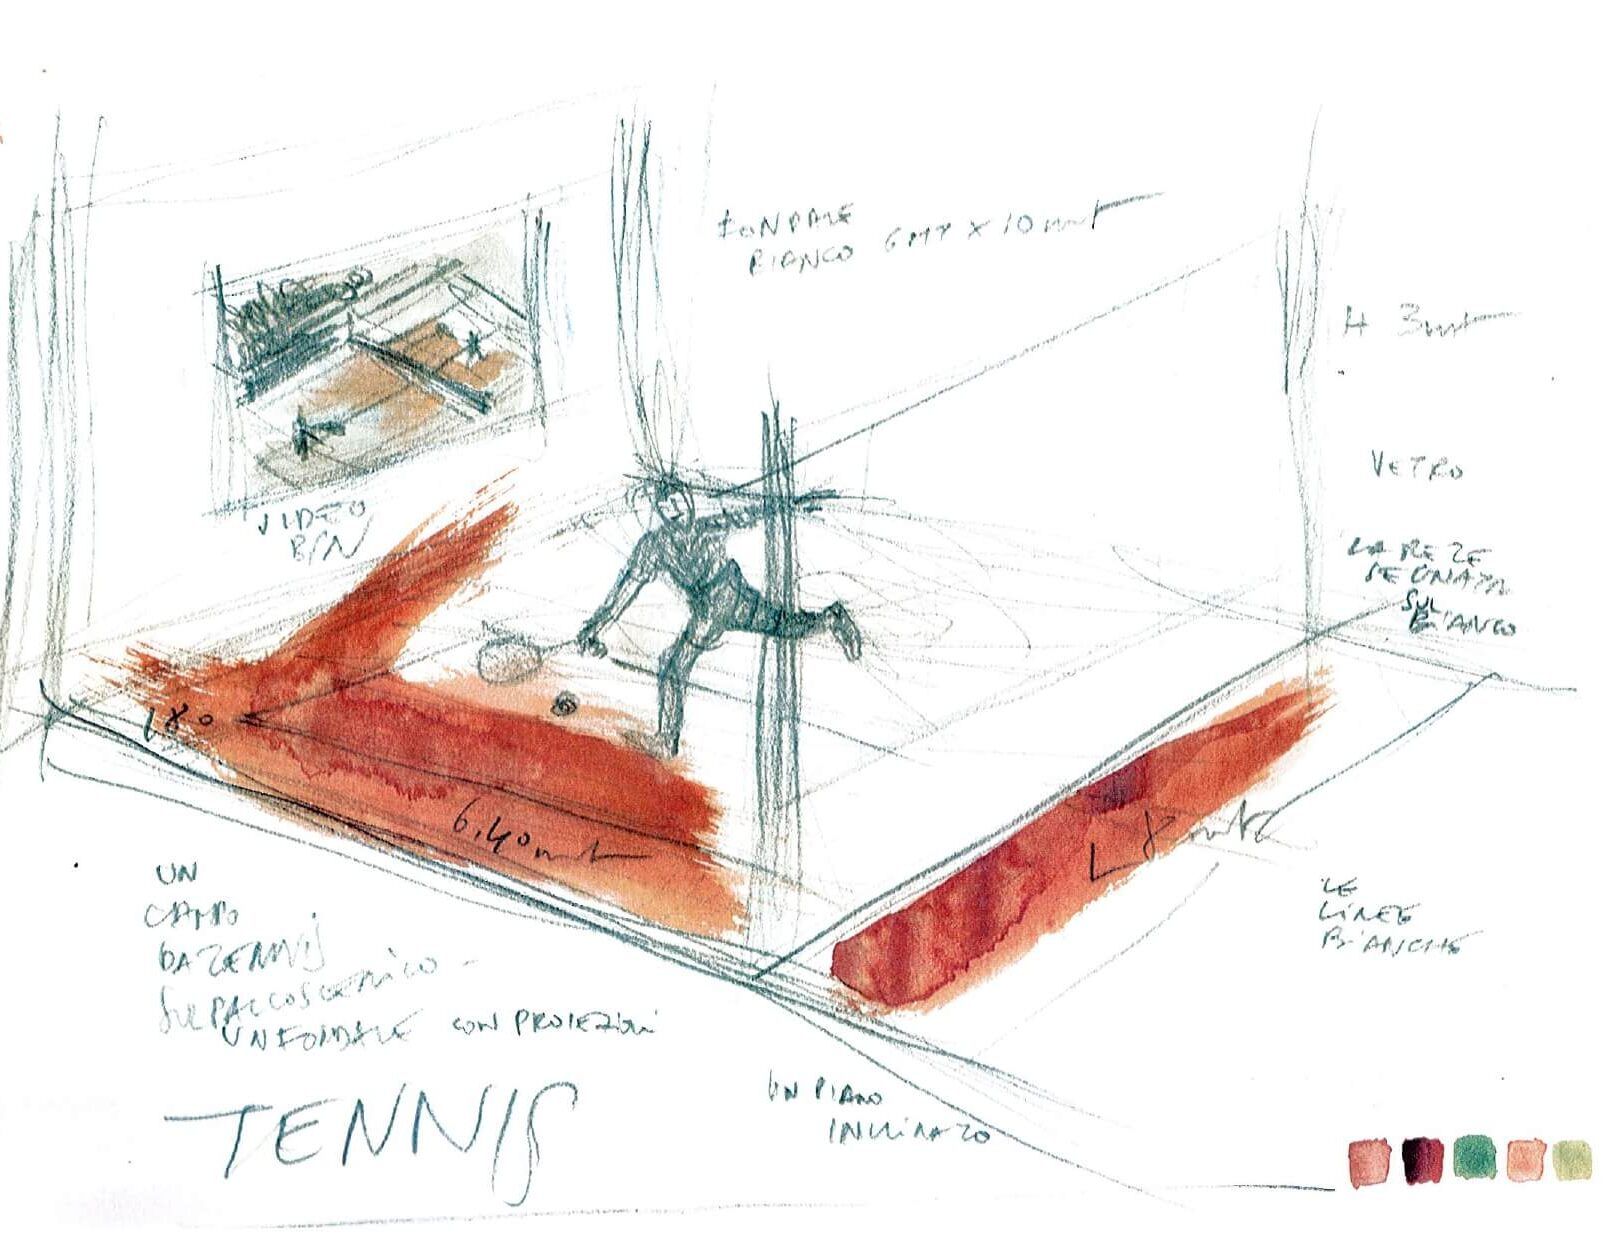 FONDALE
BIANCO 6 MT X 10 mt
H 3 mt
VETRO
LA RETE
SEGNATA
SUL
BIANCO
VIDEO
B/N
180
6,40 mt
L 8 mt
UN
CAMPO
DA TENNIS
SUL PALCOSCENICO -
UN FONDALE CON PROIEZIONI
LE
LINEE
BIANCHE
UN PIANO
INCLINATO
TENNIS